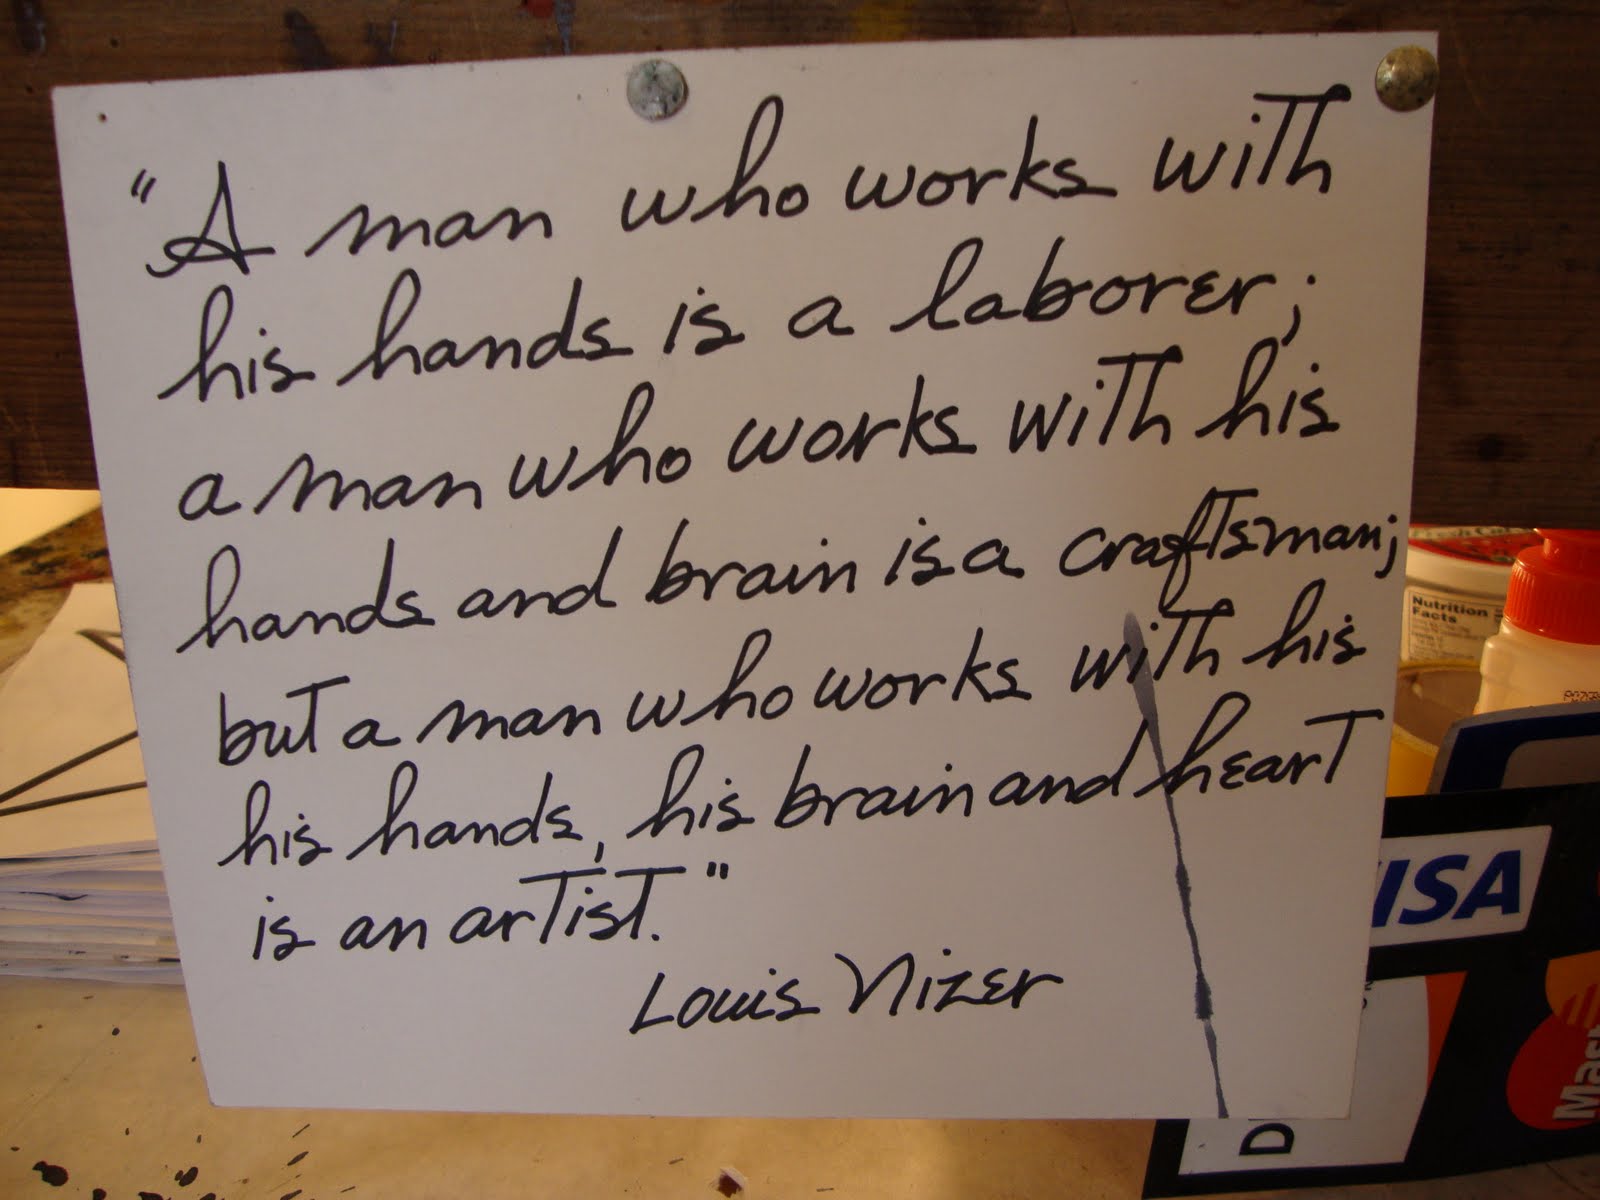 "A man who works with
his hands is a laborer;
a man who works with his
hands and brain is a craftsman;
but a man who works with his
his hands, his brain and heart
is an artist."
Louis Nizer
Nutrition
Facts
VISA